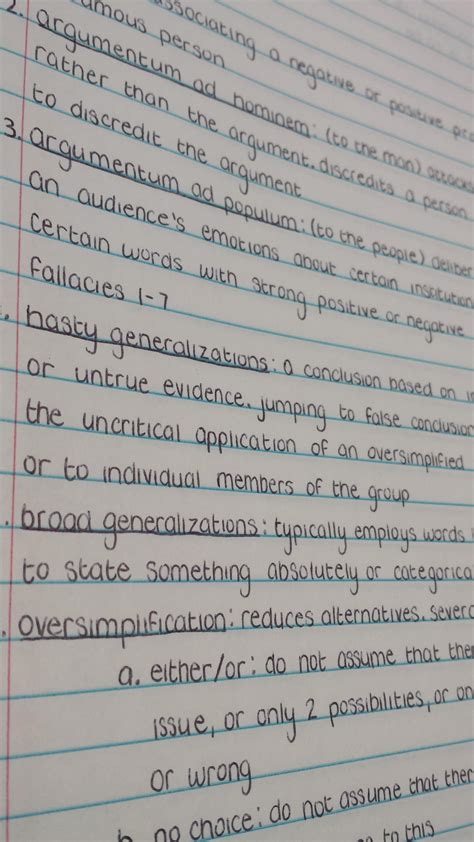 associating a negative or positive
famous person
2. argumentum ad hominem: (to the man)
rather than the argument. discredits a person
to discredit the argument
3. argumentum ad populum: (to the people)
an audience's emotions about certain
certain words with strong positive or negative
fallacies 1-7
hasty generalizations: a conclusion based on
or untrue evidence. jumping to false
the uncritical application of an oversimplified
or to individual members of the group
broad generalizations: typically employs words
to state something absolutely or
oversimplification: reduces alternatives.
a. either/or: do not assume that
issue, or only 2 possibilities, or
or wrong
b. no choice: do not assume that
to this